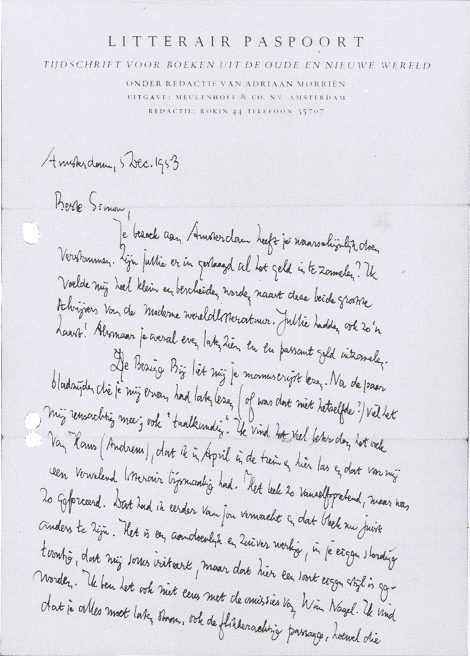 LITTERAIR PASPOORT
TIJDSCHRIFT VOOR BOEKEN UIT DE OUDE EN NIEUWE WERELD
ONDER REDACTIE VAN ADRIAAN MORRIËN
UITGAVE: MEULENHOFF & CO. NV. AMSTERDAM
REDACTIE: ROKIN 44 TELEFOON 35707
Amsterdam, 5 Dec. 1953
Beste Simon,
Je bezoek aan Amsterdam heeft je waarschijnlijk doen
verstommen. Zijn jullie er in geslaagd al het geld in te zamelen? Ik
voelde mij heel klein en bescheiden worden naast deze beide grootse
schrijvers van de moderne wereldliteratuur. Jullie hadden ook zo'n
haast! Alsmaar je overal even laten zien en en passant geld inzamelen.
De Bezige Bij liet mij je manuscript lezen. Na de paar
bladzijden die je mij ervan had laten lezen (of was dat niet hetzelfde?) viel het
mij reusachtig mee, ook "taalkundig". Ik vind het veel beter dan het boek
van Hans (Andreus), dat ik in April in de trein hier las en dat voor mij
een vervelend literair bijsmaakje had. Het leek zo vanzelfsprekend, maar was
zo geforceerd. Dat had ik eerder van jou verwacht en dat bleek nu juist
anders te zijn. Het is een aandoenlijk en zuiver werkje, in je eigen slordig
toontje, dat mij soms irriteert, maar dat hier een soort eigen stijl is ge-
worden. Ik ben het ook niet eens met de omissies van Wim Nagel. Ik vind
dat je alles moet laten staan, ook de passages, hoewel die